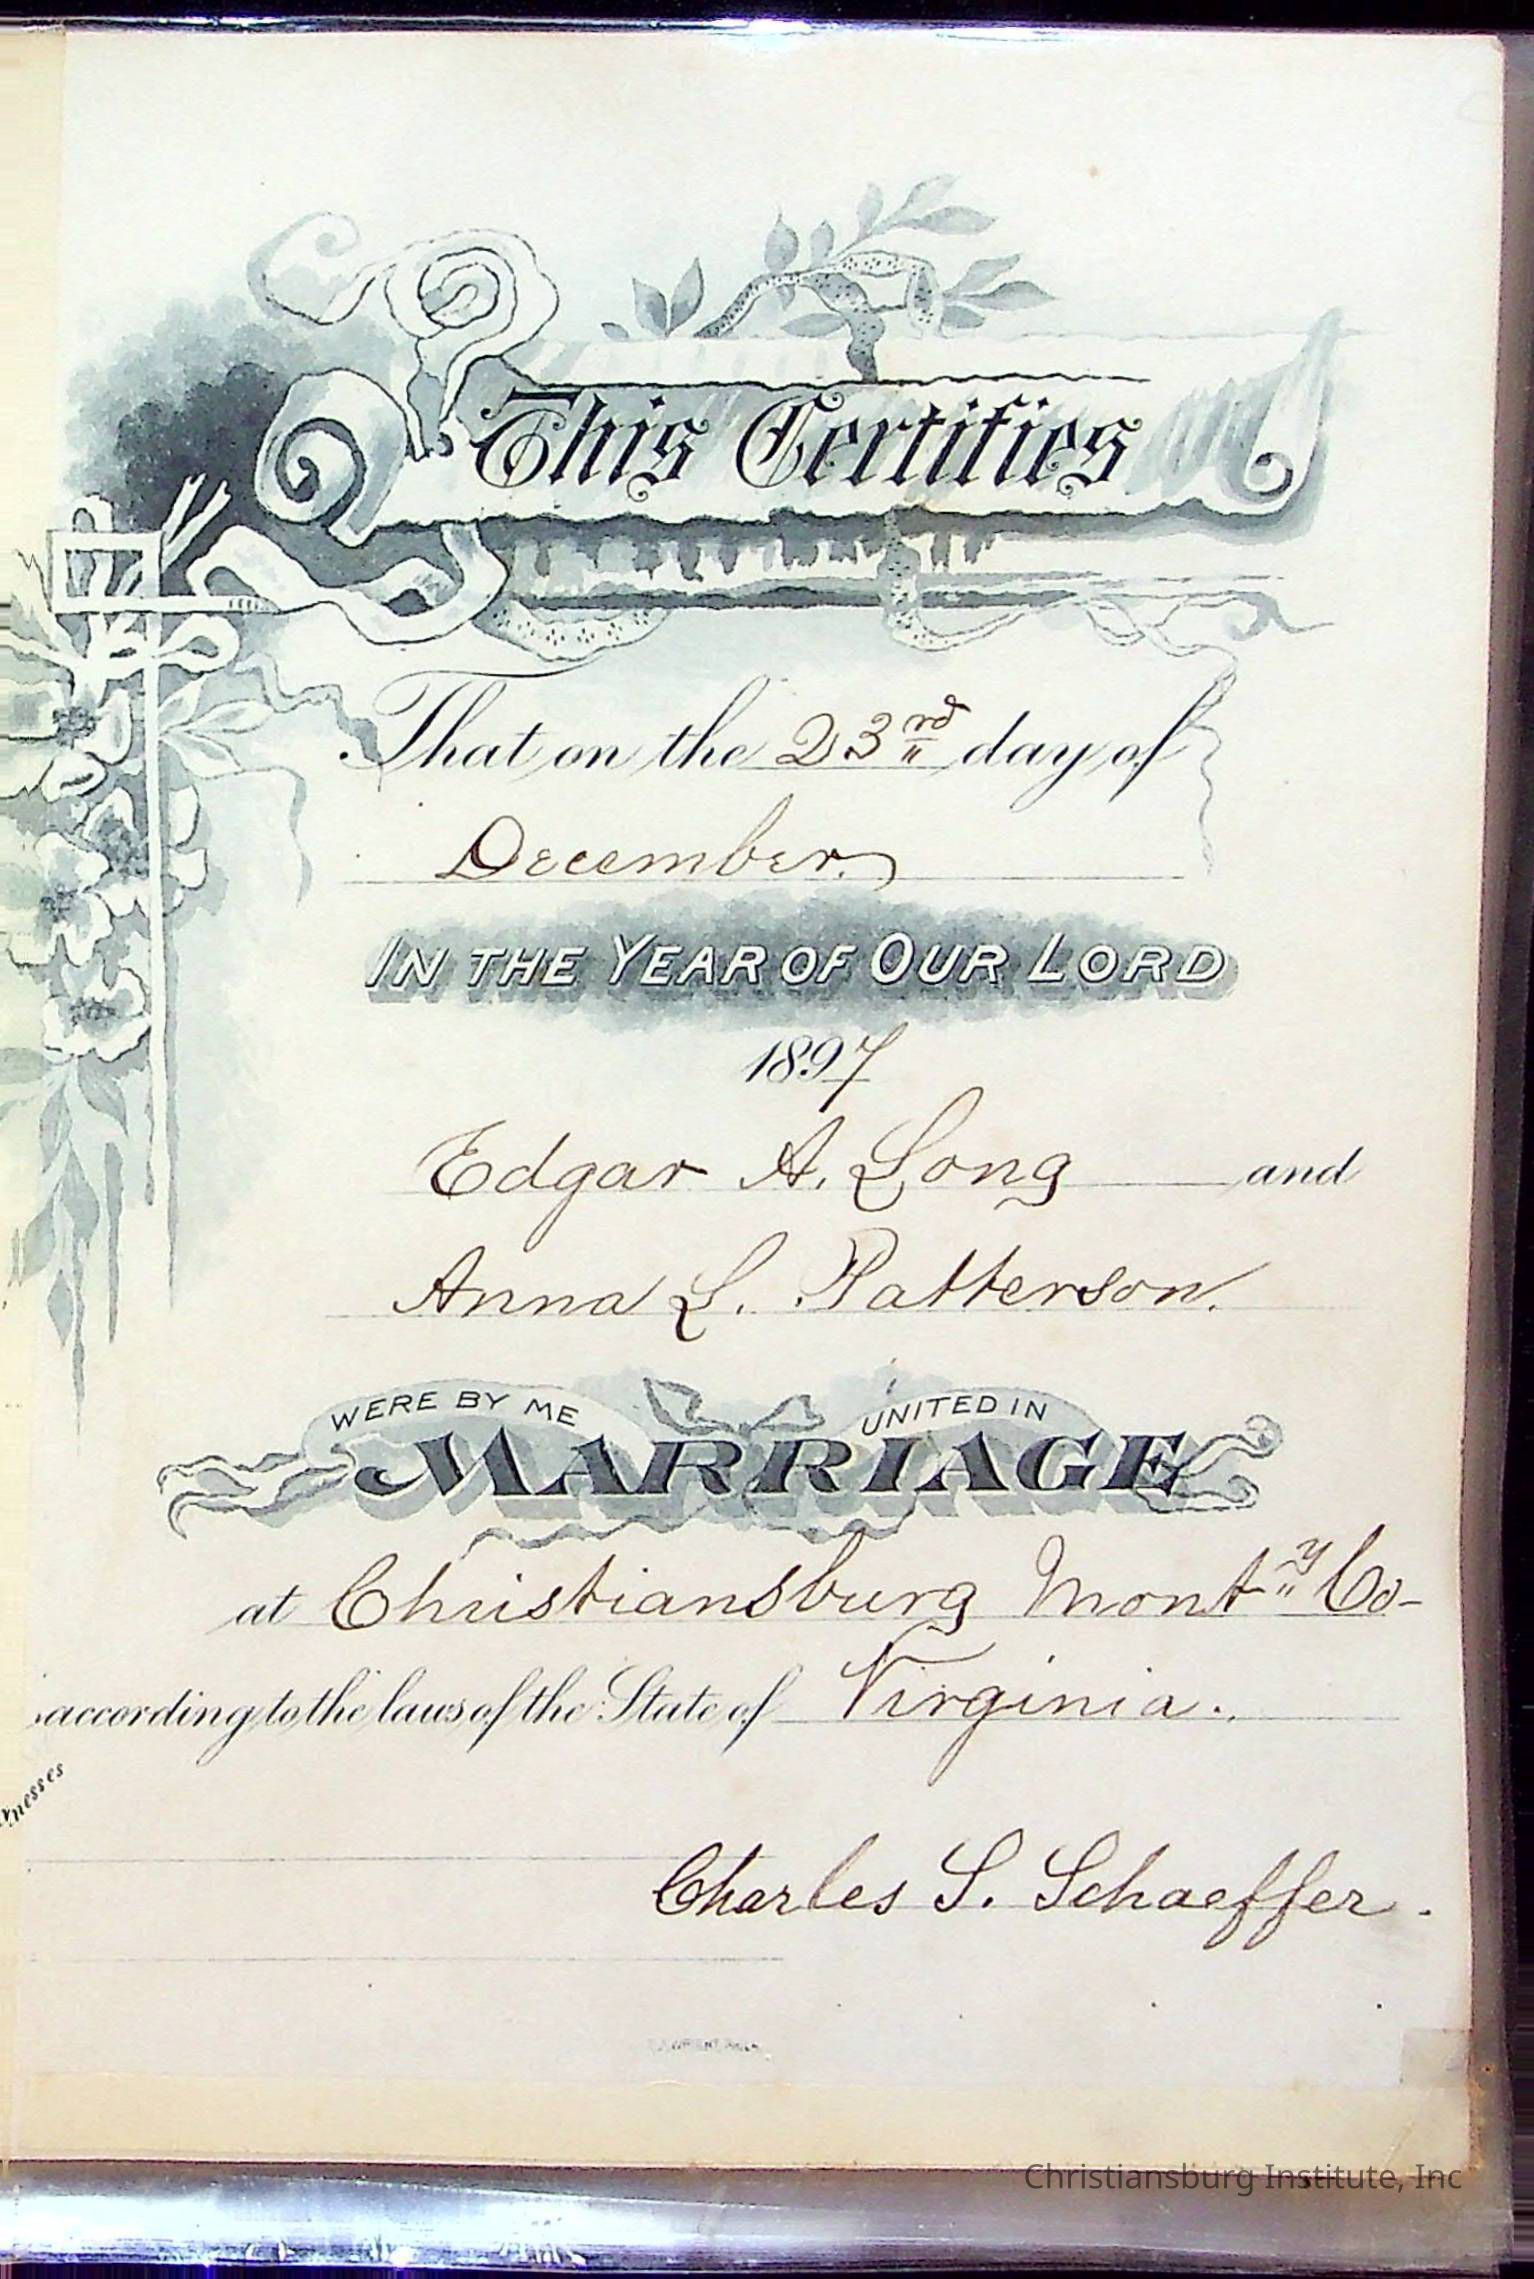 This Certifies
That on the 23rd day of
December.
IN THE YEAR OF OUR LORD
1897
Edgar A. Long and
Anna L. Patterson.
WERE BY ME UNITED IN
MARRIAGE
at Christiansburg Mont'y Co-
according to the laws of the State of Virginia.
Charles S. Schaeffer.
Christiansburg Institute, Inc